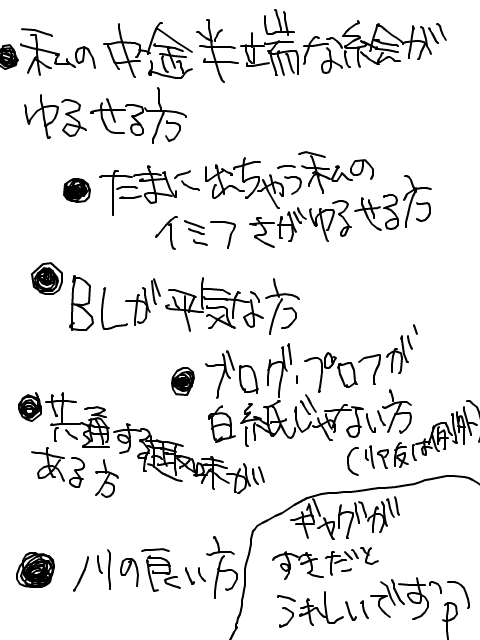 ●私の中途半端な絵が
ゆるせる方
●たまに出ちゃう私の
イミフさがゆるせる方
●BLが平気な方
●ブログ・プロフが
白紙じゃない方
(リア友は例外)
●共通する趣味が
ある方
●川の良い方
ギャグが
すきだと
うれしいですっp